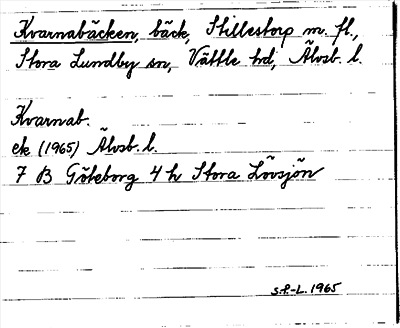 Kvarnabäcken, bäck, Stillestorp m. fl.,
Stora Lundby sn, Vättle hd, Älvsb. l.
Kvarnab.
ek (1965) Älvsb. l.
7 B Göteborg 4 h Stora Lövsjön
S.P.-L. 1965